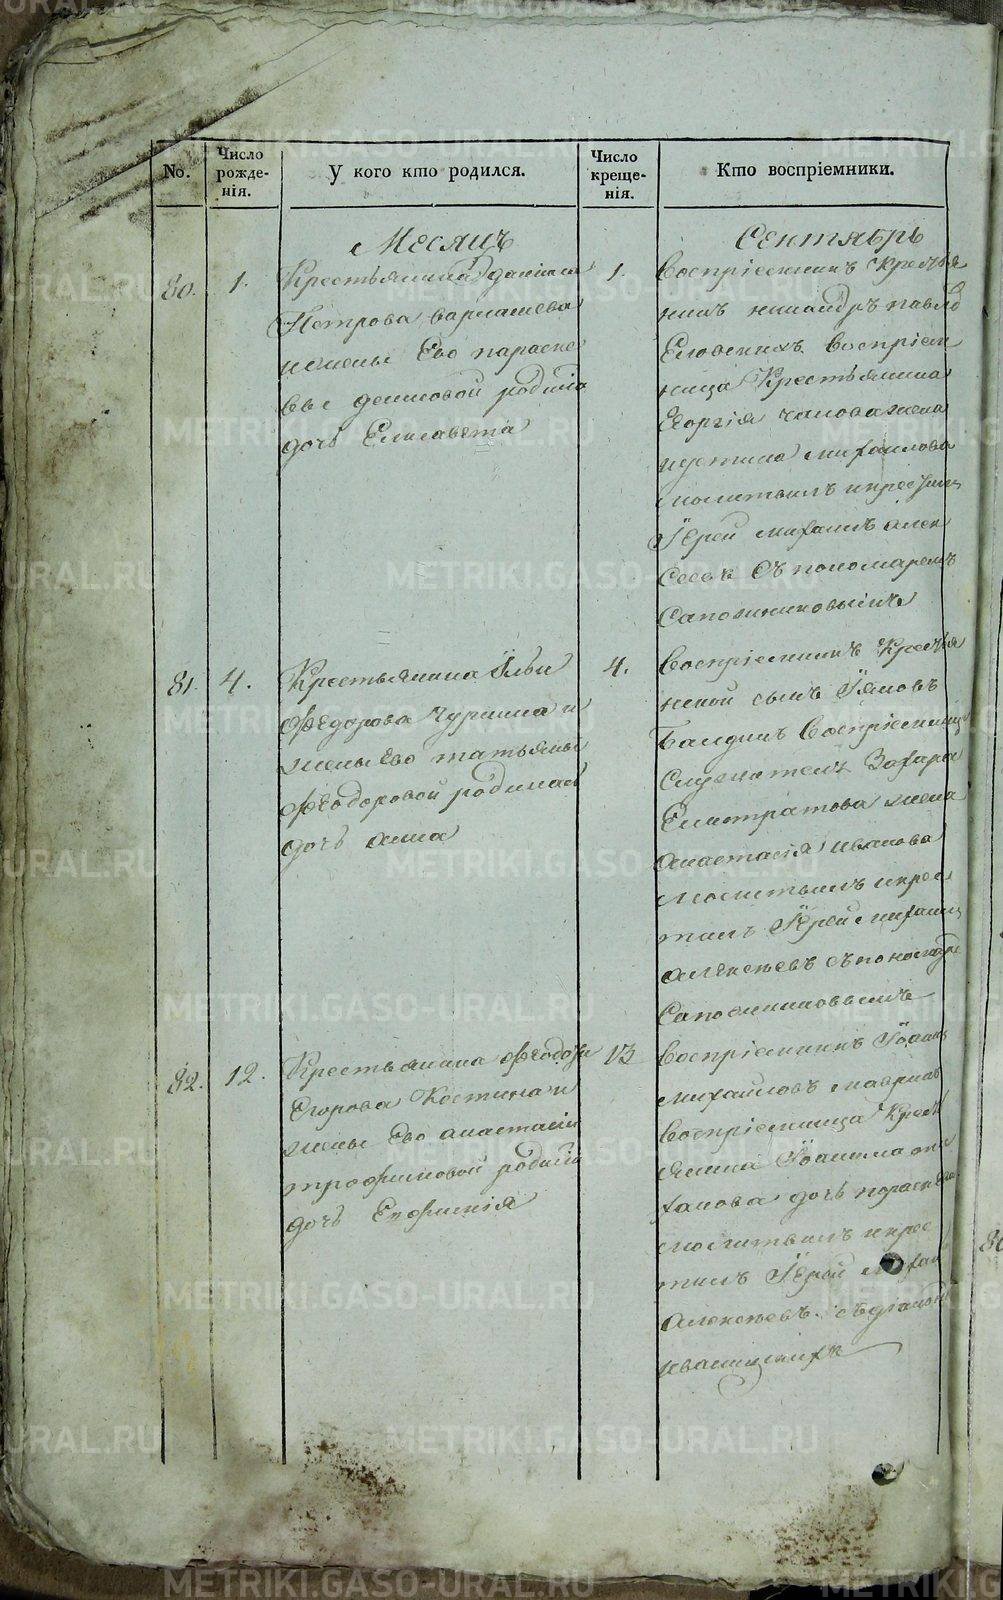 No.
Число рожде-нія.
У кого кто родился.
Число креще-нія.
Кто воспріемники.
Месяцъ
Сентябрь
80.
1.
Крестьянина Данила
Петрова Варлашева
и жены Ево параске
вы денисовой родилась
дочь Елисавета
1.
Воспріемникъ крестья
нинъ павло
Воспріем
ница Крестьянина
Георгія жена
устина михаилова
молитвилъ и крестилъ
Іерей михаилъ алек
сеевъ Съ пономаремъ
Сапожниковымъ
81.
4.
Крестьянина Ильи
Федорова Чурина и
жены Ево татьяны
Феодоровой родилась
дочь анна
4.
Воспріемникъ Крестья
нской сынъ Іяковъ
Балдинъ Воспріемница
Служителя Захара
Елистратова жена
анастасія иванова
молитвилъ и крес
тилъ Іерей михаилъ
алексеевъ съ пономаремъ
Сапожниковымъ
82.
12.
Крестьянина Феодора
Егорова Костина и
жены Ево анастасіи
трофимовой родилась
дочь Евфимія
13
Воспріемникъ Іоаннъ
михайловъ мавринъ
Воспріемница Крест
янина
дочь параскева
молитвилъ и крес
тилъ Іерей михаилъ
алексеевъ. съ дьякономъ
METRIKI.GASO-URAL.RU